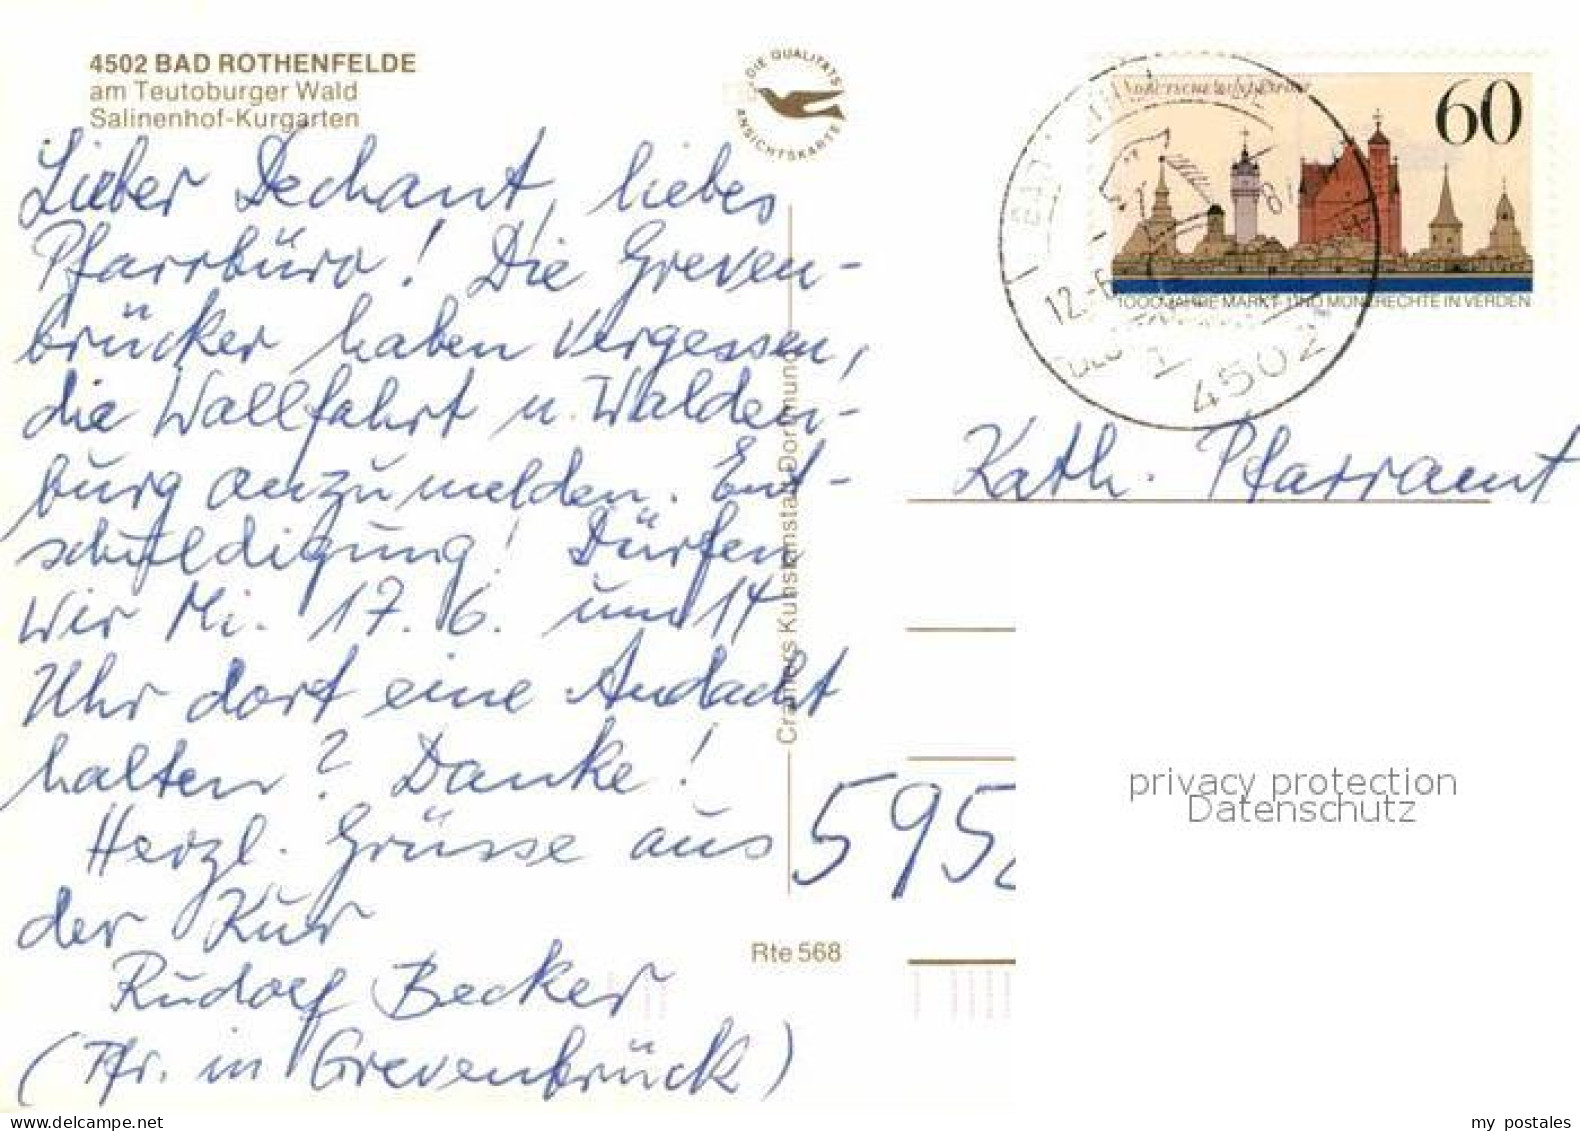 4502 BAD ROTHENFELDE
am Teutoburger Wald
Salinenhof-Kurgarten
DIE QUALITÄTS
ANSICHTSKARTE
60
1000 JAHRE MARKT- UND MÜNZRECHTE IN VERDEN
12.-6
4502
Lieber Dechant, liebes
Pfarrbüro! Die Greven-
brücker haben vergessen,
die Wallfahrt n. Walden-
burg anzumelden. Ent-
schuldigung! Dürfen
wir Mi. 17. 6. um 14
Uhr dort eine Andacht
halten? Danke!
Herzl. Grüsse aus
der Kur
Rudolf Becker
(Pfr. in Grevenbrück)
Cramers Kunstanstalt Dortmund
Kath. Pfarramt
595
Rte 568
privacy protection
Datenschutz
www.ansichtskartenversand.com
my postales